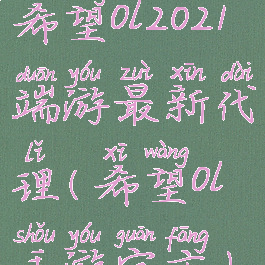 希望Ol2021
duān yóu zuì xīn dài
端游最新代
lǐ xī wàng
理(希望Ol
shǒu yóu guān fāng
手游官方)